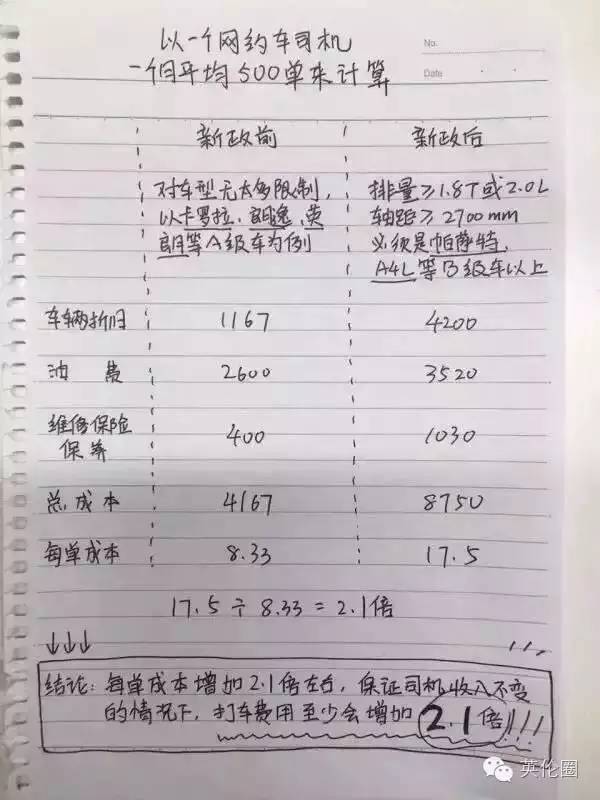 以一个网约车司机
一个月平均500单来计算
No.
Date
新政前 新政后
对车型无太多限制, 排量≥1.8T或2.0L
以卡罗拉、朗逸、英 轴距≥2700mm
朗等A级车为例 必须是帕萨特、
A4L等B级车以上
车辆折旧 1167 4200
油费 2600 3520
维修保险
保养 400 1030
总成本 4167 8750
每单成本 8.33 17.5
17.5÷8.33=2.1倍
↓↓↓
结论:每单成本增加2.1倍左右,保证司机收入不变
的情况下,打车费用至少会增加2.1倍!!!
英伦圈